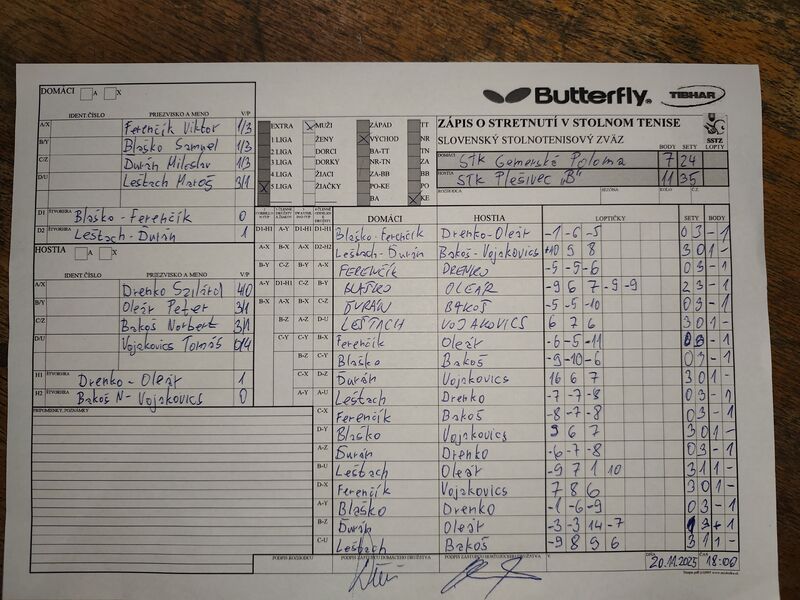 DOMÁCI A X
IDENT.ČÍSLO PRIEZVISKO A MENO V/P
A/X Ferenčík Viktor 1/3
B/Y Blaško Samuel 1/3
C/Z Durán Miloslav 1/3
D/U Leštach Maroš 3/1
D1 ŠTVORHRA Blaško - Ferenčík 0
D2 ŠTVORHRA Leštach - Ďurán 1
HOSTIA A X
IDENT ČÍSLO PRIEZVISKO A MENO V/P
A/X Drenko Szilárd 4/0
B/Y Oleár Peter 3/1
C/Z Bakoš Norbert 3/1
D/U Vojakovics Tomáš 0/4
H1 ŠTVORHRA Drenko - Oleár 1
H2 ŠTVORHRA Bakoš N - Vojakovics 0
PRIPOMIENKY, POZNÁMKY
EXTRA MUŽI ZÁPAD TT
1 LIGA ŽENY VÝCHOD NR
2 LIGA DORCI BA-TT TN
3 LIGA DORKY NR-TN ZA
4 LIGA ŽIACI ZA-BB BB
5 LIGA ŽIAČKY PO-KE PO
BA KE
Butterfly TIBHAR
ZÁPIS O STRETNUTÍ V STOLNOM TENISE
SLOVENSKÝ STOLNOTENISOVÝ ZVÄZ SSTZ
BODY SETY LOPTY
DOMÁCI STK Gemerská Poloma 7 24
HOSTIA STK Plešivec "B" 11 35
ROZHODCA SEZÓNA KOLO Č.Z
DOMÁCI HOSTIA LOPTIČKY SETY BODY
D1-H1 A-Y B-X D1-H1 Blaško-Ferenčík Drenko-Oleár -1 -6 -5 0 3 - 1
A-X B-X D1-H1 D2-H2 Leštach-Ďurán Bakoš-Vojakovics 10 9 8 3 0 1 -
B-Y C-Z B-Y A-X FERENČÍK DRENKO -5 -5 -6 0 3 - 1
A-Y D1-H1 C-Z B-Y BLAŠKO OLEÁR -9 6 7 -9 -9 2 3 - 1
B-X A-X A-X C-Z ĎURÁN BAKOŠ -5 -5 -10 0 3 - 1
B-Z A-Z D-U LEŠTACH VOJAKOVICS 6 7 6 3 0 1 -
C-Y B-X A-Y Ferenčík Oleár -6 -5 -11 0 3 - 1
B-Z C-Y B-Z Blaško Bakoš -9 -10 -6 0 3 - 1
C-X D-Z C-U Ďurán Vojakovics 16 6 7 3 0 1 -
A-Y A-U D-X Leštach Drenko -7 -7 -8 0 3 - 1
C-X Ferenčík Bakoš -8 -7 -8 0 3 - 1
D-Y Blaško Vojakovics 9 6 7 3 0 1 -
A-Z Ďurán Drenko -6 -7 -8 0 3 - 1
B-U Leštach Oleár -9 7 1 10 3 1 1 -
D-X Ferenčík Vojakovics 7 8 6 3 0 1 -
A-Y Blaško Drenko -1 -6 -9 0 3 - 1
B-Z Ďurán Oleár -3 -3 14 -7 1 3 - 1
C-U Leštach Bakoš -9 8 9 6 3 1 1 -
PODPIS ROZHODCU PODPIS ZÁSTUPCU DOMÁCEHO DRUŽSTVA PODPIS ZÁSTUPCU HOSŤUJÚCEHO DRUŽSTVA V DŇA 20.11.2025 ČAS 18:00